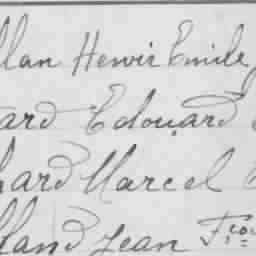 llan Henri Emile
ard Edouard
hard Marcel
lland Jean Fçois